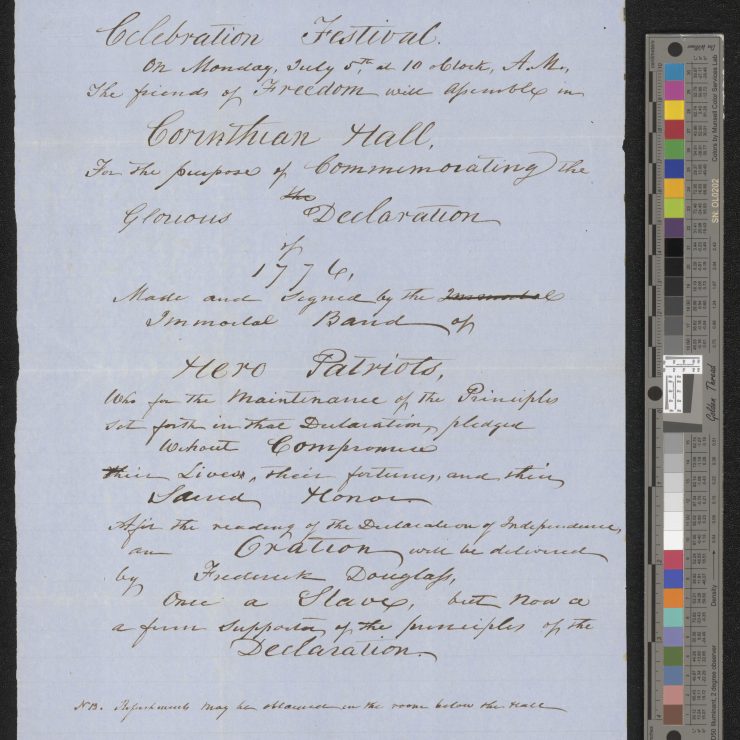 Celebration Festival.
On Monday, July 5th, at 10 oClock, A.M.,
The friends of Freedom will Assemble in
Corinthian Hall,
For the purpose of Commemorating the
the
Glorious Declaration
of
1776,
Made and Signed by the Immortal
Immortal Band of
Hero Patriots,
Who for the Maintenance of the Principles
Set forth in that Declaration, pledged
Without Compromise
their Lives, their fortunes, and their
Sacred Honor
After the reading of the Declaration of Independence,
an Oration will be delivered
by Frederick Douglass,
Once a Slave, but now a
a firm supporter of the principles of the
Declaration.
NB. Refreshments may be obtained in the room below the Hall
Golden Thread
SN: OL0202
Colors by Munsell Color Services Lab
Density
D50 Illuminant, 2 degree observer